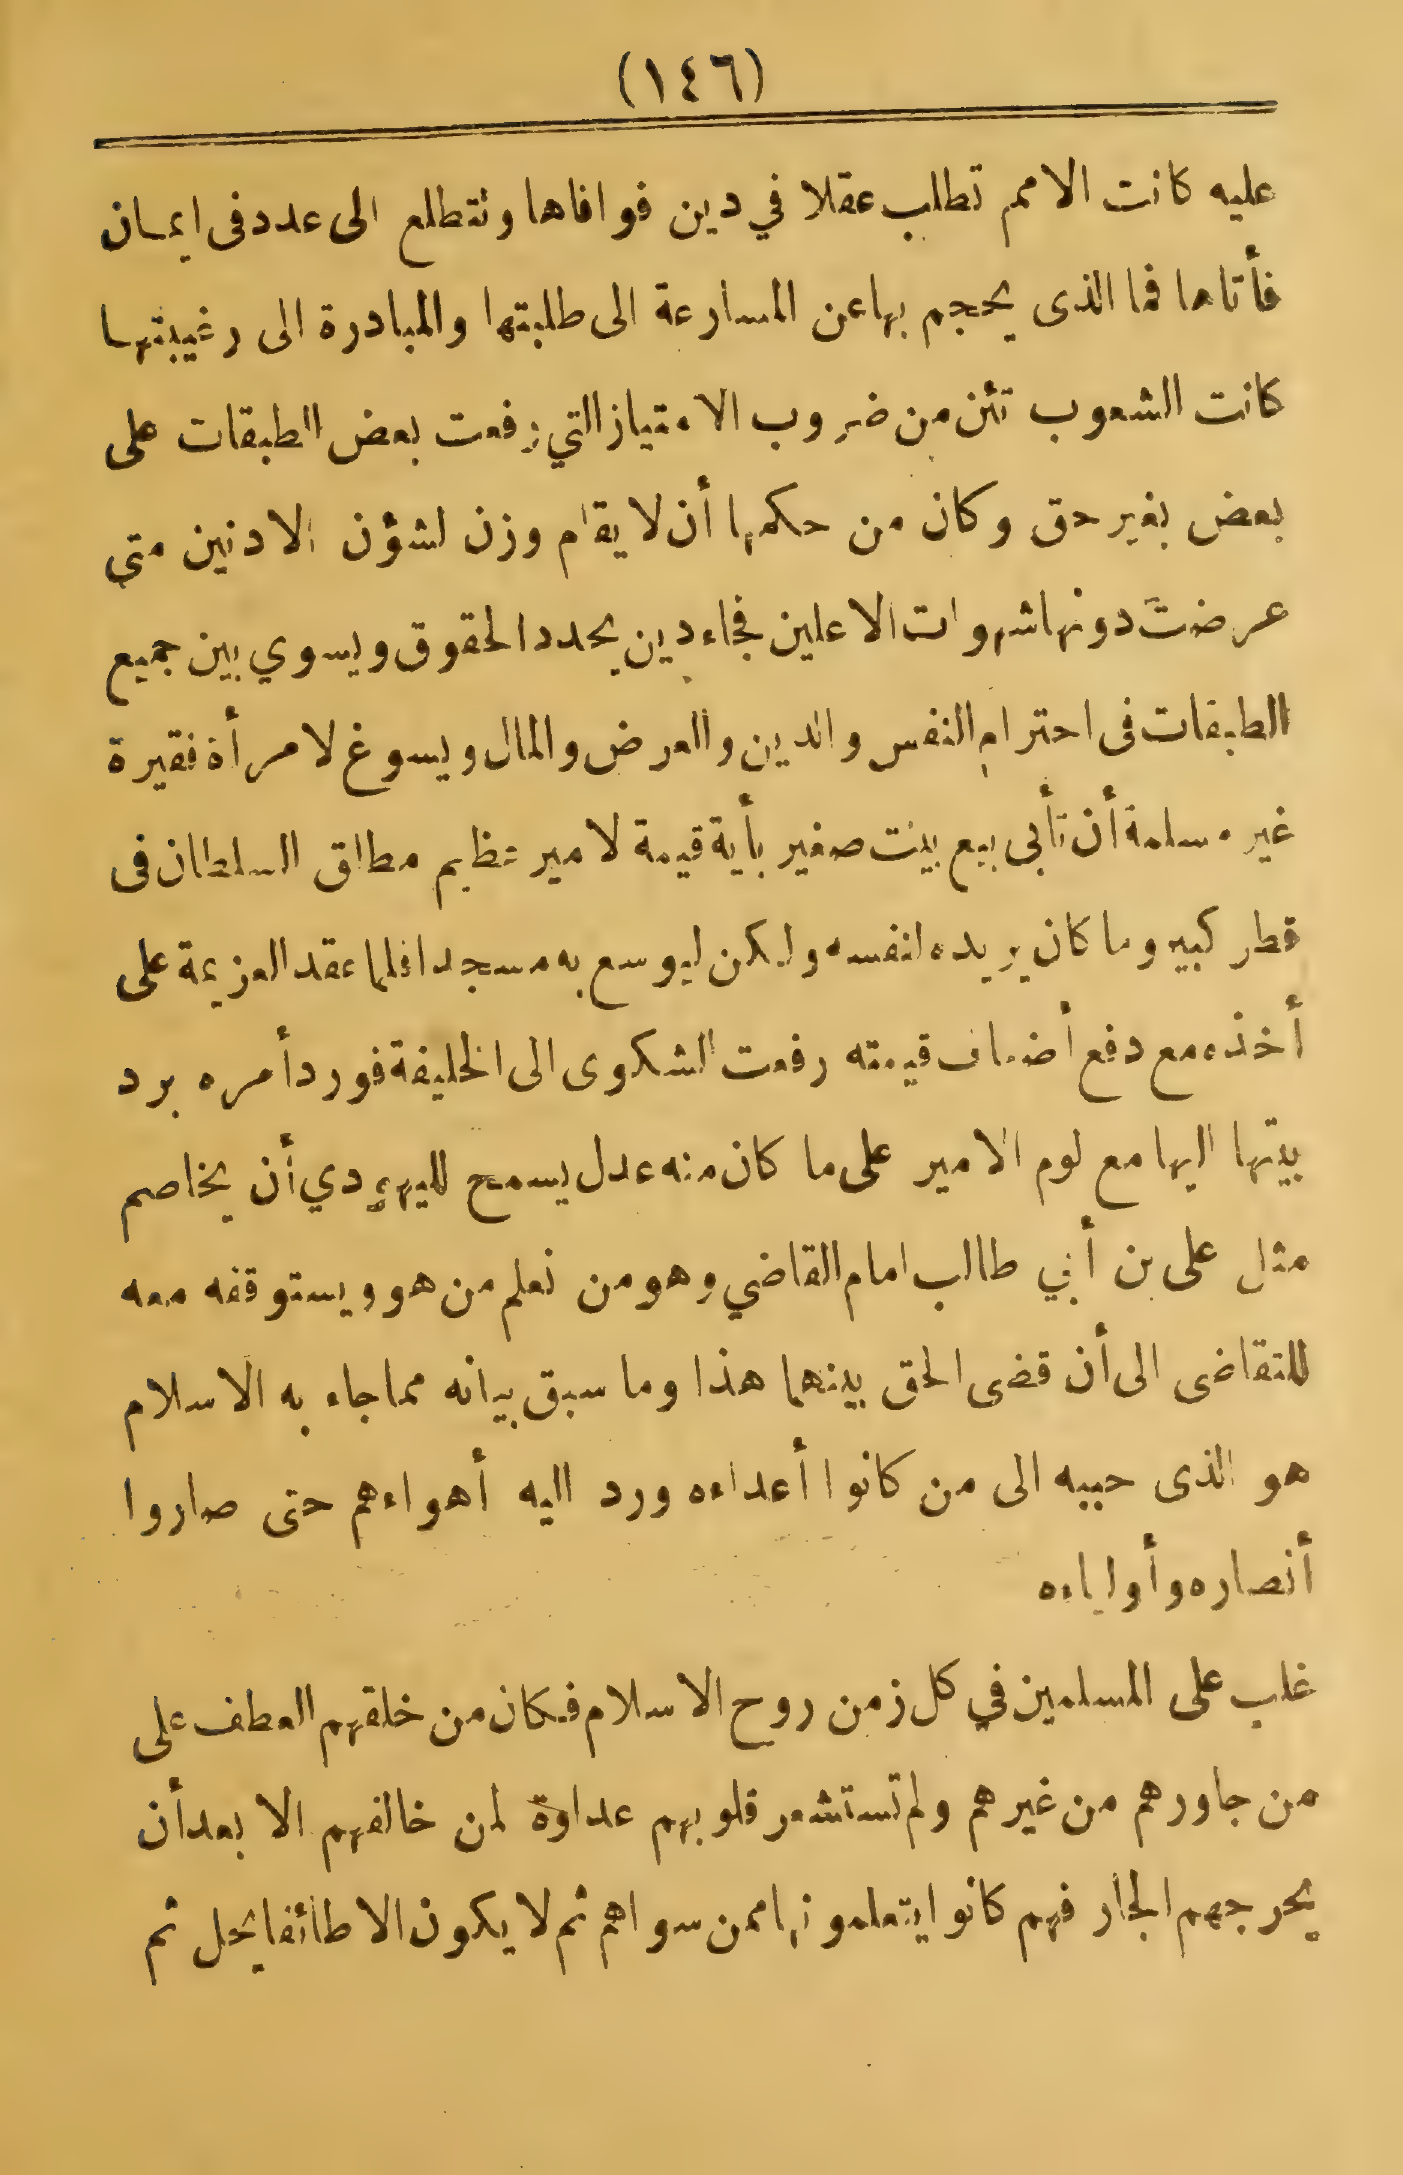 (١٤٦)
عليه كانت الامم تطلب عقلا في دين فوافاها وتتطلع الى عدد فى ايمان
فأتاها فما الذى يحجم بها عن المسارعة الى طلبتها والمبادرة الى رغيبتها
كانت الشعوب تئن من ضروب الامتياز التي رفعت بعض الطبقات على
بعض بغير حق وكان من حكمها أن لا يقام وزن لشؤن الادنين متى
عرضت دونها شهوات الاعلين فجاء دين يحدد الحقوق ويسوي بين جميع
الطبقات فى احترام النفس والدين والعرض والمال ويسوغ لامرأة فقيرة
غير مسلمة أن تأبى بيع بيت صغير بأية قيمة لامير عظيم مطلق السلطان فى
قطر كبير وما كان يريده لنفسه ولكن ليوسع به مسجدا فلما عقد العزيمة على
أخذه مع دفع أضعاف قيمته رفعت الشكوى الى الخليفة فورد أمره برد
بيتها اليها مع لوم الامير على ما كان منه عدل يسمح لليهودي أن يخاصم
مثل على بن أبي طالب امام القاضي وهو من نعلم من هو ويستوقفه معه
للتقاضى الى أن قضى الحق بينهما هذا وما سبق بيانه مما جاء به الاسلام
هو الذى حببه الى من كانوا أعداءه ورد اليه أهواءهم حتى صاروا
أنصاره وأولياءه
غلب على المسلمين في كل زمن روح الاسلام فكان من خلقهم العطف على
من جاورهم من غيرهم ولم تستشعر قلوبهم عداوة لمن خالفهم الا بعد أن
يحرجهم الجار فهم كانوا يتعلمونها ممن سواهم ثم لا يكون الا طائفا يحل ثم